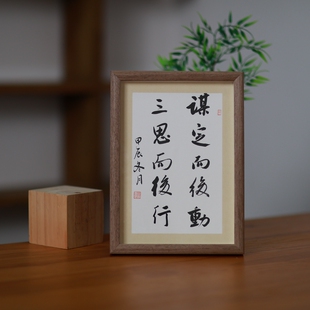 謀定而後動
三思而後行
甲辰冬月